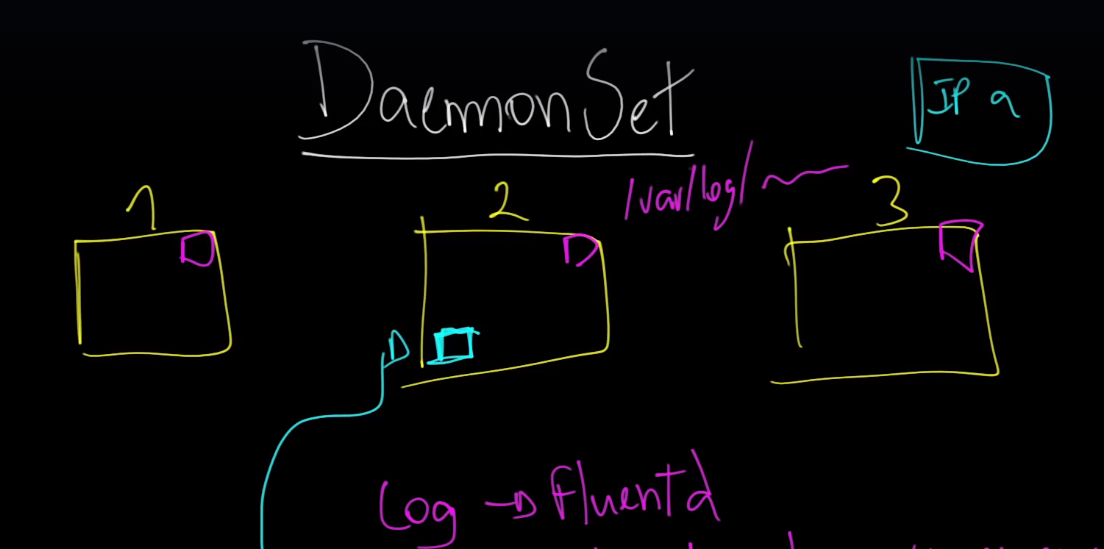 DaemonSet
IP a
/var/log/
1
2
3
Log → Fluentd